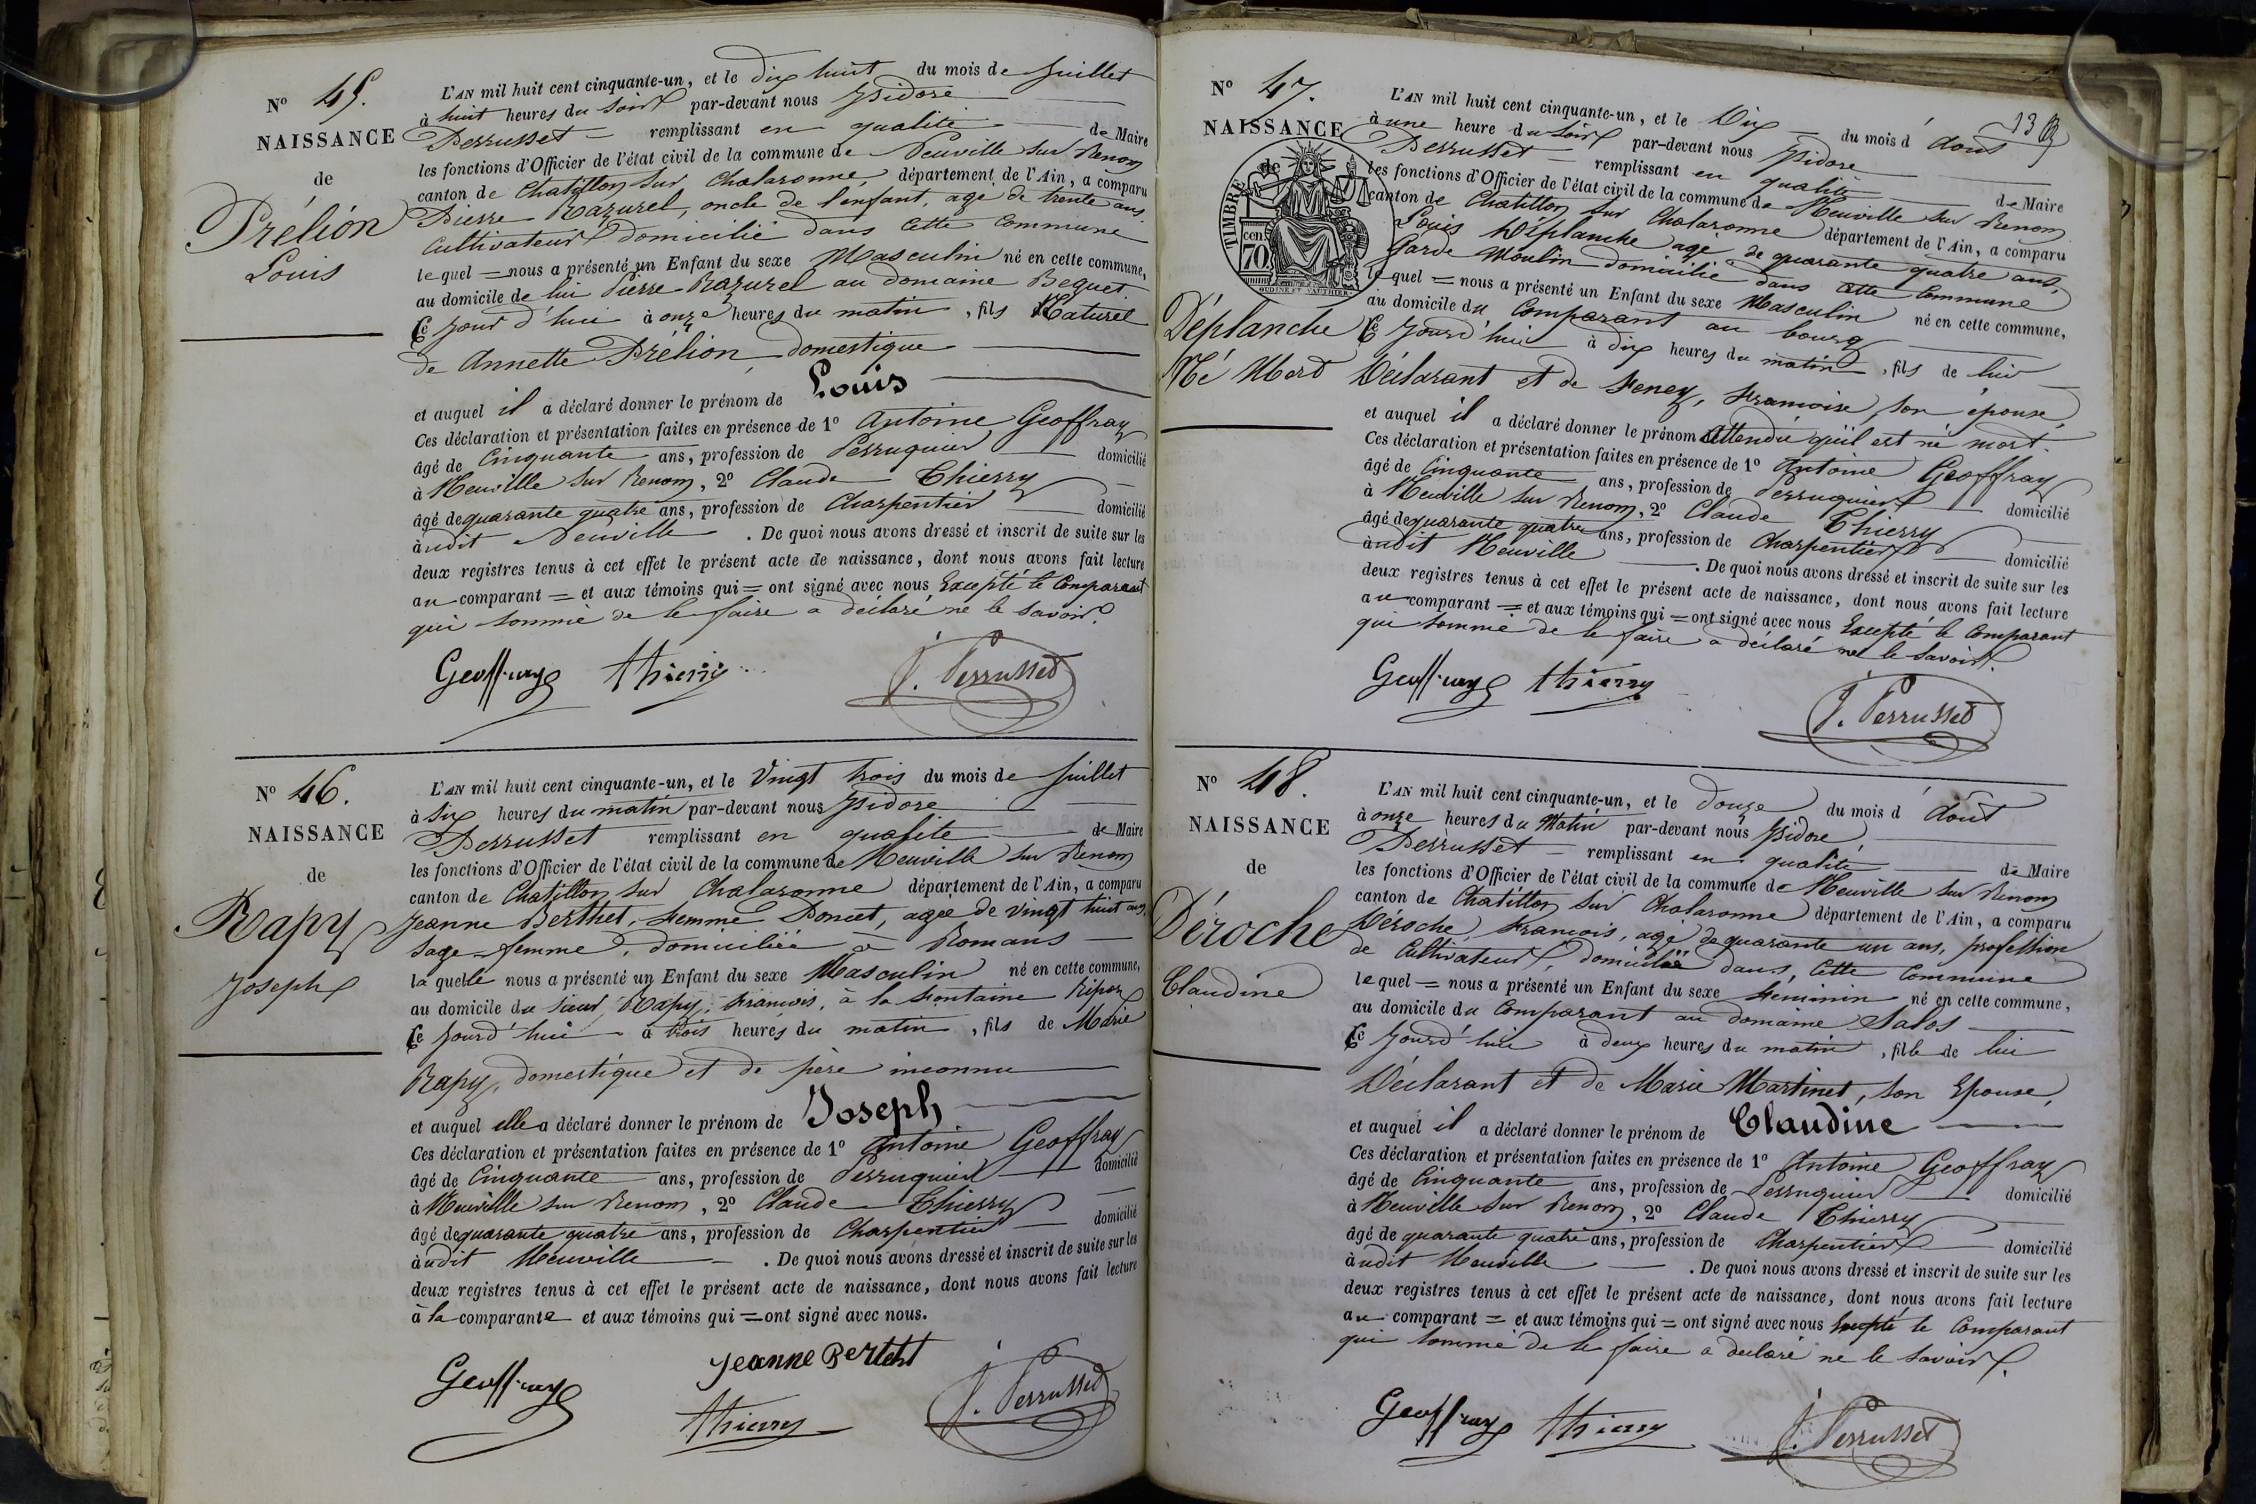 N° 45.
NAISSANCE
de
Prélion
Louis
L'AN mil huit cent cinquante-un, et le dix huit du mois de juillet
à huit heures du soir par-devant nous Isidore
Perrusset = remplissant en qualité de Maire
les fonctions d'Officier de l'état civil de la commune de Neuville sur Renom
canton de Chatillon sur Chalaronne, département de l'Ain, a comparu
Pierre Razurel, oncle de l'enfant, agé de trente ans,
Cultivateur domicilié dans cette Commune
lequel = nous a présenté un Enfant du sexe Masculin né en cette commune,
au domicile de lui Pierre Razurel au domaine Bequet
Ce jour d'hui à onze heures du matin, fils Naturel
de Annette Prélion, domestique
et auquel il a déclaré donner le prénom de Louis
Ces déclaration et présentation faites en présence de 1° Antoine Geoffray
âgé de Cinquante ans, profession de Perruquier domicilié
à Neuville sur Renom, 2° Claude Thierry
âgé de quarante quatre ans, profession de Charpentier domicilié
àudit Neuville. De quoi nous avons dressé et inscrit de suite sur les
deux registres tenus à cet effet le présent acte de naissance, dont nous avons fait lecture
au comparant = et aux témoins qui = ont signé avec nous Excepté le Comparant
qui sommé de le faire a déclaré ne le savoir.
Geoffray Thierry J. Perrusset
N° 46.
NAISSANCE
de
Rapy
Joseph
L'AN mil huit cent cinquante-un, et le Vingt trois du mois de juillet
à Six heures du matin par-devant nous Isidore
Perrusset remplissant en qualité de Maire
les fonctions d'Officier de l'état civil de la commune de Neuville sur Renom
canton de Chatillon sur Chalaronne département de l'Ain, a comparu
Jeanne Berthet, femme Poncet, agée de vingt huit ans,
Sage-femme, domiciliée à Romans
laquelle nous a présenté un Enfant du sexe Masculin né en cette commune,
au domicile du sieur Rapy, François, à la fontaine
Ce jourd'hui à trois heures du matin, fils de Marie
Rapy, domestique et de père inconnu
et auquel elle a déclaré donner le prénom de Joseph
Ces déclaration et présentation faites en présence de 1° Antoine Geoffray
âgé de Cinquante ans, profession de Perruquier domicilié
à Neuville sur Renom, 2° Claude Thierry
âgé de quarante quatre ans, profession de Charpentier domicilié
àudit Neuville. De quoi nous avons dressé et inscrit de suite sur les
deux registres tenus à cet effet le présent acte de naissance, dont nous avons fait lecture
à la comparante et aux témoins qui = ont signé avec nous.
Geoffray Jeanne Berteht
Thierry J. Perrusset
13
N° 47.
NAISSANCE
de
TIMBRE
cen
70
OUDINÉ ET VAUTHIER
Déplanche
Né Mort
L'AN mil huit cent cinquante-un, et le Dix du mois d'Aout
à une heure du soir par-devant nous Isidore
Perrusset = remplissant en qualité de Maire
les fonctions d'Officier de l'état civil de la commune de Neuville sur Renom
canton de Chatillon sur Chalaronne département de l'Ain, a comparu
Louis Déplanche agé de quarante quatre ans,
Garde Moulin domicilié dans cette Commune
lequel = nous a présenté un Enfant du sexe Masculin né en cette commune,
au domicile du Comparant au bourg
Ce jourd'hui à dix heures du matin, fils de lui
Déclarant et de Feney, Francoise, son épouse,
et auquel il a déclaré donner le prénom Attendu qu'il est né mort.
Ces déclaration et présentation faites en présence de 1° Antoine Geoffray
âgé de Cinquante ans, profession de Perruquier domicilié
à Neuville sur Renom, 2° Claude Thierry
âgé de quarante quatre ans, profession de Charpentier domicilié
àudit Neuville. De quoi nous avons dressé et inscrit de suite sur les
deux registres tenus à cet effet le présent acte de naissance, dont nous avons fait lecture
au comparant = et aux témoins qui = ont signé avec nous Excepté le Comparant
qui sommé de le faire a déclaré ne le savoir.
Geoffray Thierry J. Perrusset
N° 48.
NAISSANCE
de
Déroche
Claudine
L'AN mil huit cent cinquante-un, et le douze du mois d'Août
à onze heures du Matin par-devant nous Isidore
Perrusset = remplissant en qualité de Maire
les fonctions d'Officier de l'état civil de la commune de Neuville sur Renom
canton de Chatillon sur Chalaronne département de l'Ain, a comparu
Déroche, François, agé de quarante un ans, profession
de Cultivateur, domicilié dans, Cette Commune
lequel = nous a présenté un Enfant du sexe féminin né en cette commune,
au domicile du Comparant au domaine Salos
Ce jourd'hui à deux heures du matin, fille de lui
Déclarant et de Marie Martinet, son Epouse,
et auquel il a déclaré donner le prénom de Claudine
Ces déclaration et présentation faites en présence de 1° Antoine Geoffray
âgé de Cinquante ans, profession de Perruquier domicilié
à Neuville sur Renom, 2° Claude Thierry
âgé de quarante quatre ans, profession de Charpentier domicilié
àudit Neuville. De quoi nous avons dressé et inscrit de suite sur les
deux registres tenus à cet effet le présent acte de naissance, dont nous avons fait lecture
au comparant = et aux témoins qui = ont signé avec nous Excepté le Comparant
qui sommé de le faire a declaré ne le savoir.
Geoffray Thierry J. Perrusset